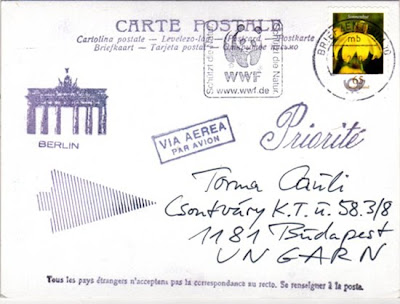 CARTE POSTALE
Cartolina postale — Levelezo-lap — Postcard — Postkarte
Briefkaart — Tarjeta postal
Schützt die Natur
WWF
www.wwf.de
BRIEFZENTRUM
mb
65
BERLIN
VIA AEREA
PAR AVION
Priorité
Torma Cauli
Csontváry K.T. u. 58.3/8
1181 Budapest
UNGARN
Tous les pays étrangers n'acceptent pas la correspondance au recto. Se renseigner à la poste.